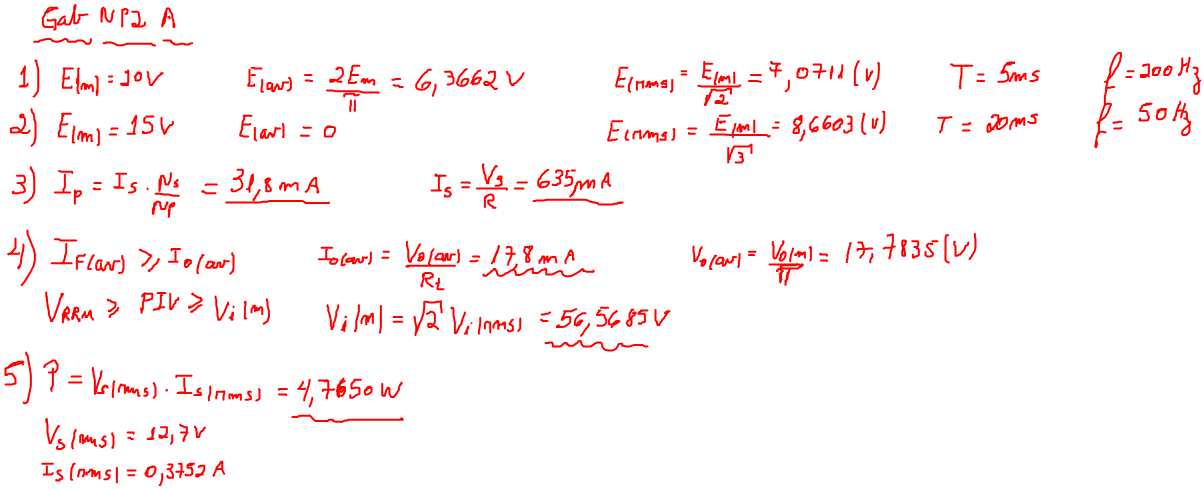 Gab NP2 A
1) E(m) = 10V E(av) = 2Em/π = 6,3662 V E(rms) = E(m)/√2 = 7,0711 (V) T = 5ms f = 200 Hz
2) E(m) = 15V E(av) = 0 E(rms) = E(m)/√3 = 8,6603 (V) T = 20ms f = 50 Hz
3) Ip = Is · Ns/Np = 31,8 mA Is = Vs/R = 635 mA
4) IF(av) ≥ Io(av) Io(av) = Vo(av)/RL = 17,8 mA Vo(av) = Vo(m)/π = 17,7835 (V)
VRRM ≥ PIV ≥ Vi(m) Vi(m) = √2 Vi(rms) = 56,5685 V
5) P = Vs(rms) · Is(rms) = 4,7650 W
Vs(rms) = 12,7 V
Is(rms) = 0,3752 A